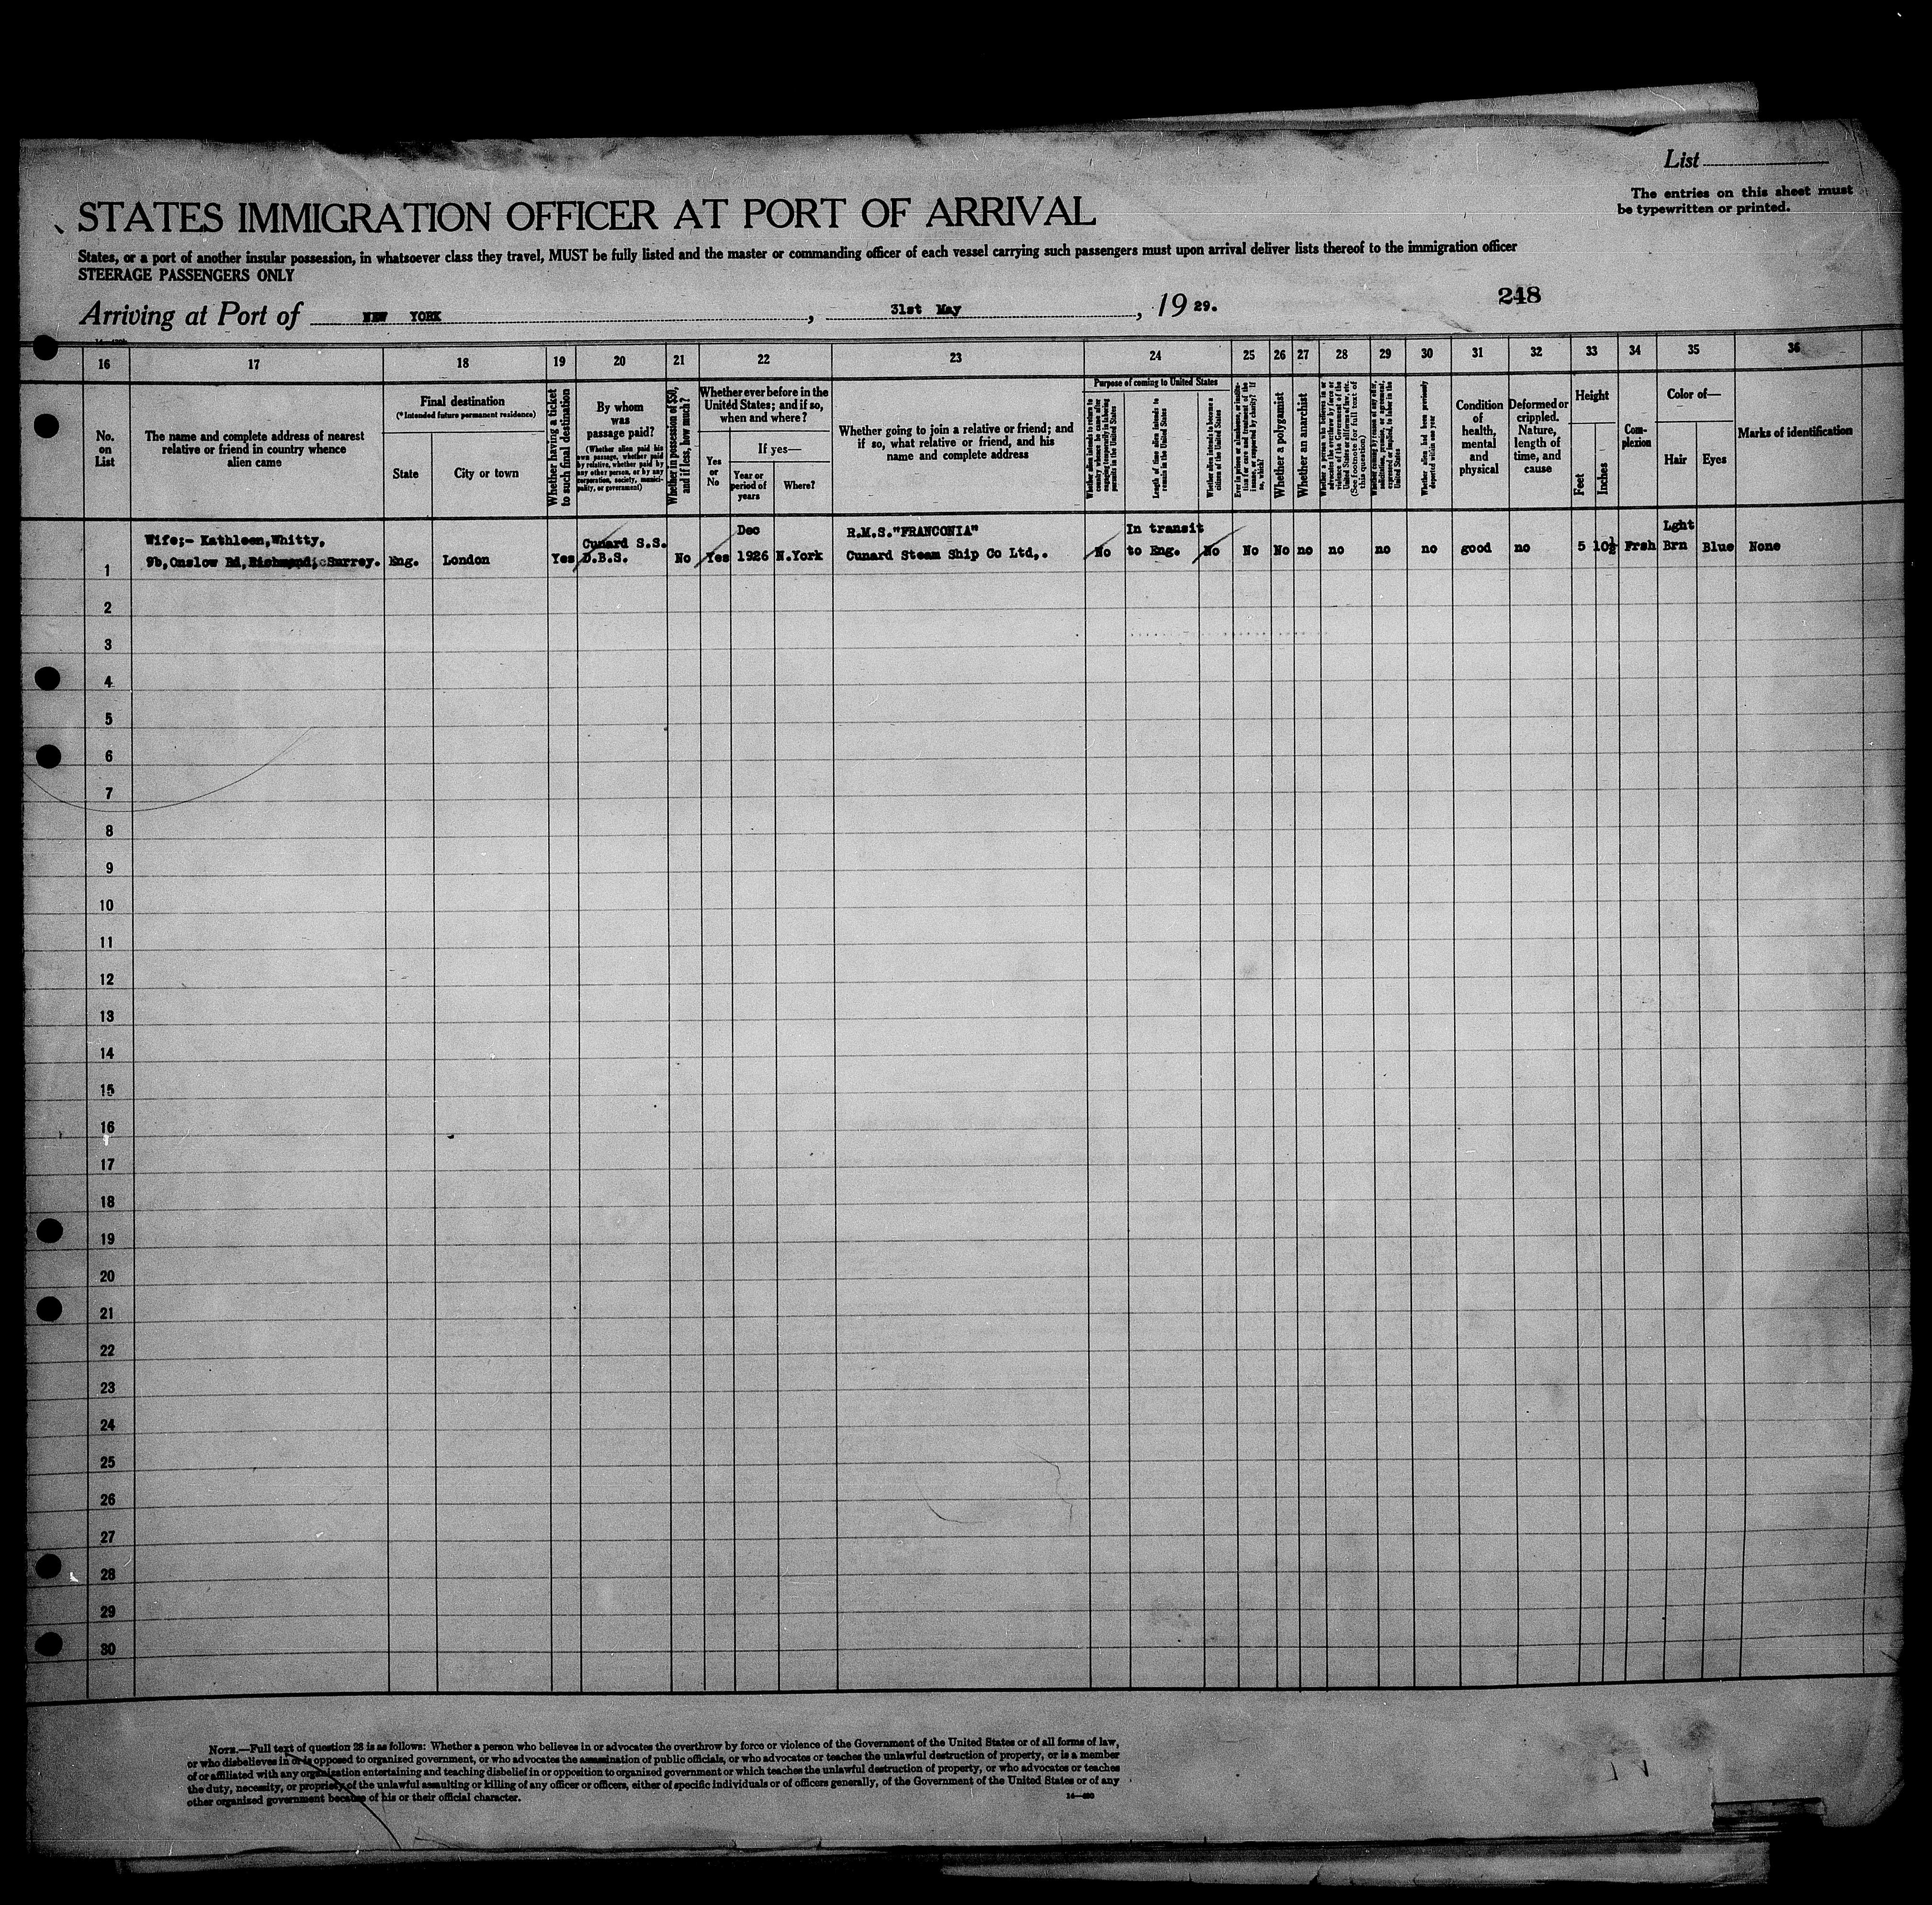 List
The entries on this sheet must
be typewritten or printed.
STATES IMMIGRATION OFFICER AT PORT OF ARRIVAL
States, or a port of another insular possession, in whatsoever class they travel, MUST be fully listed and the master or commanding officer of each vessel carrying such passengers must upon arrival deliver lists thereof to the immigration officer
STEERAGE PASSENGERS ONLY
248
Arriving at Port of NEW YORK , 31st May , 19 29.
16 17 18 19 20 21 22 23 24 25 26 27 28 29 30 31 32 33 34 35 36
No.
on
List
The name and complete address of nearest
relative or friend in country whence
alien came
Final destination
(*Intended future permanent residence)
State
City or town
Whether having a ticket
to such final destination
By whom
was
passage paid?
(Whether alien paid his
own passage, whether paid
by relative, whether paid by
any other person, or by any
corporation, society, munici-
pality, or government)
Whether in possession of $50,
and if less, how much?
Whether ever before in the
United States; and if so,
when and where?
Yes
or
No
If yes—
Year or
period of
years
Where?
Whether going to join a relative or friend; and
if so, what relative or friend, and his
name and complete address
Purpose of coming to United States
Whether alien intends to return to
country whence he came after
engaging temporarily in laboring
pursuits in the United States
Length of time alien intends to
remain in the United States
Whether alien intends to become a
citizen of the United States
Ever in prison or almshouse, or institu-
tion for care and treatment of the
insane, or supported by charity? If
so, which?
Whether a polygamist
Whether an anarchist
Whether a person who believes in or
advocates the overthrow by force or
violence of the Government of the
United States or all forms of law, etc.
(See footnote for full text of
this question)
Whether coming by reason of any offer,
solicitation, promise, or agreement,
expressed or implied, to labor in the
United States
Whether alien had been previously
deported within one year
Condition
of
health,
mental
and
physical
Deformed or
crippled.
Nature,
length of
time, and
cause
Height
Feet
Inches
Com-
plexion
Color of—
Hair
Eyes
Marks of identification
Wife;- Kathleen, Whitty, Cunard S.S. Dec R.M.S. "FRANCONIA" In transit Lght
1 9b, Onslow Rd, Richmond, Surrey. Eng. London Yes D.B.S. No Yes 1926 N.York Cunard Steam Ship Co Ltd,. No to Eng. No No No no no no no good no 5 10½ Frsh Brn Blue None
2
3
4
5
6
7
8
9
10
11
12
13
14
15
16
17
18
19
20
21
22
23
24
25
26
27
28
29
30
NOTE.—Full text of question 28 is as follows: Whether a person who believes in or advocates the overthrow by force or violence of the Government of the United States or of all forms of law,
or who disbelieves in or is opposed to organized government, or who advocates the assassination of public officials, or who advocates or teaches the unlawful destruction of property, or is a member
of or affiliated with any organization entertaining and teaching disbelief in or opposition to organized government or which teaches the unlawful destruction of property, or who advocates or teaches
the duty, necessity, or propriety of the unlawful assaulting or killing of any officer or officers, either of specific individuals or of officers generally, of the Government of the United States or of any
other organized government because of his or their official character.